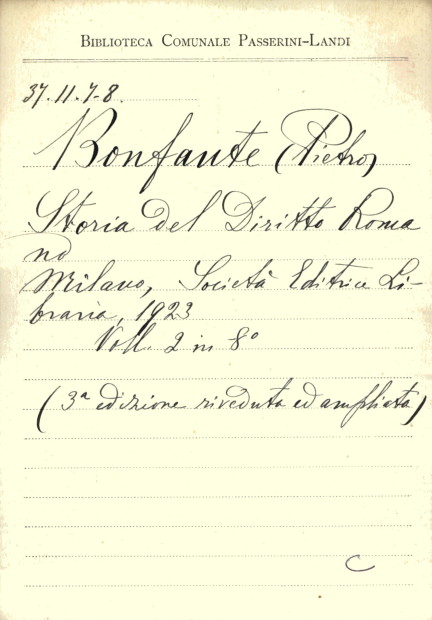 BIBLIOTECA COMUNALE PASSERINI-LANDI
37.11.7-8.
Bonfante (Pietro)
Storia del Diritto Roma
no
Milano, Società Editrice Li-
braria, 1923
Voll. 2 in 8°
(3ª edizione riveduta ed ampliata)
C